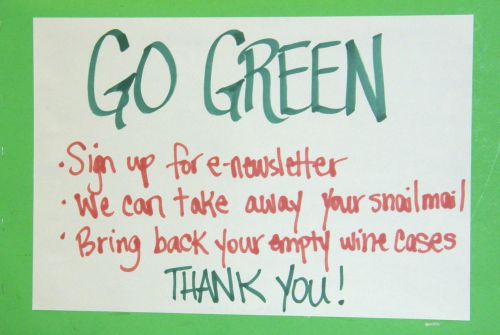 GO GREEN
· Sign up for e-newsletter
· We can take away your snail mail
· Bring back your empty wine cases
THANK YOU!